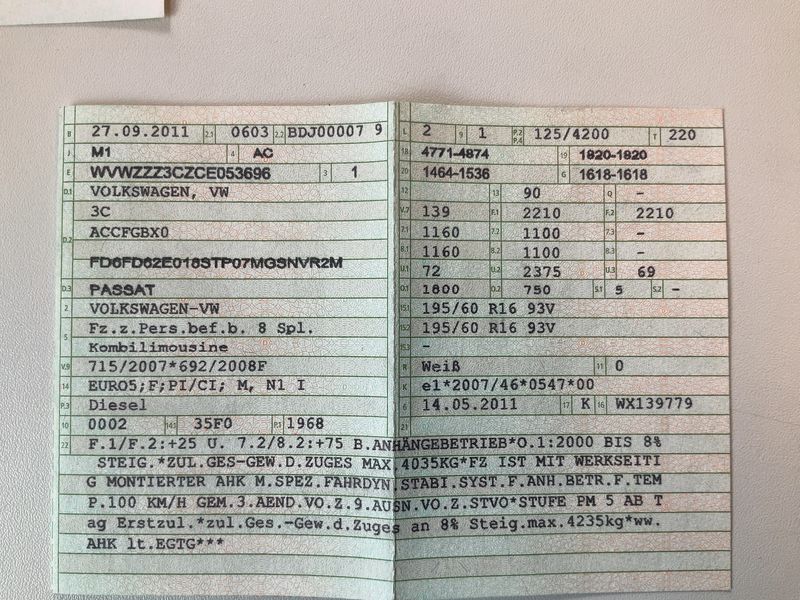 B 27.09.2011 2.1 0603 2.2 BDJ00007 9
J M1 4 AC
E WVWZZZ3CZCE053696 3 1
D.1 VOLKSWAGEN, VW
3C
D.2 ACCFGBX0
FD6FD62E018STP07MGSNVR2M
D.3 PASSAT
2 VOLKSWAGEN-VW
5 Fz.z.Pers.bef.b. 8 Spl.
Kombilimousine
V.9 715/2007*692/2008F
14 EURO5;F;PI/CI; M, N1 I
P.3 Diesel
10 0002 14.1 35F0 P.1 1968
L 2 9 1 P.2 P.4 125/4200 T 220
18 4771-4874 19 1820-1820
20 1464-1536 G 1618-1618
12 13 90 Q -
V.7 139 F.1 2210 F.2 2210
7.1 1160 7.2 1100 7.3 -
8.1 1160 8.2 1100 8.3 -
U.1 72 U.2 2375 U.3 69
O.1 1800 O.2 750 S.1 5 S.2 -
15.1 195/60 R16 93V
15.2 195/60 R16 93V
15.3 -
R Weiß 11 0
K e1*2007/46*0547*00
6 14.05.2011 17 K 16 WX139779
21
22 F.1/F.2:+25 U. 7.2/8.2:+75 B.ANHÄNGEBETRIEB*O.1:2000 BIS 8%
STEIG.*ZUL.GES-GEW.D.ZUGES MAX.4035KG*FZ IST MIT WERKSEITI
G MONTIERTER AHK M.SPEZ.FAHRDYN.STABI.SYST.F.ANH.BETR.F.TEM
P.100 KM/H GEM.3.AEND.VO.Z.9.AUSN.VO.Z.STVO*STUFE PM 5 AB T
ag Erstzul.*zul.Ges.-Gew.d.Zuges an 8% Steig.max.4235kg*ww.
AHK lt.EGTG***